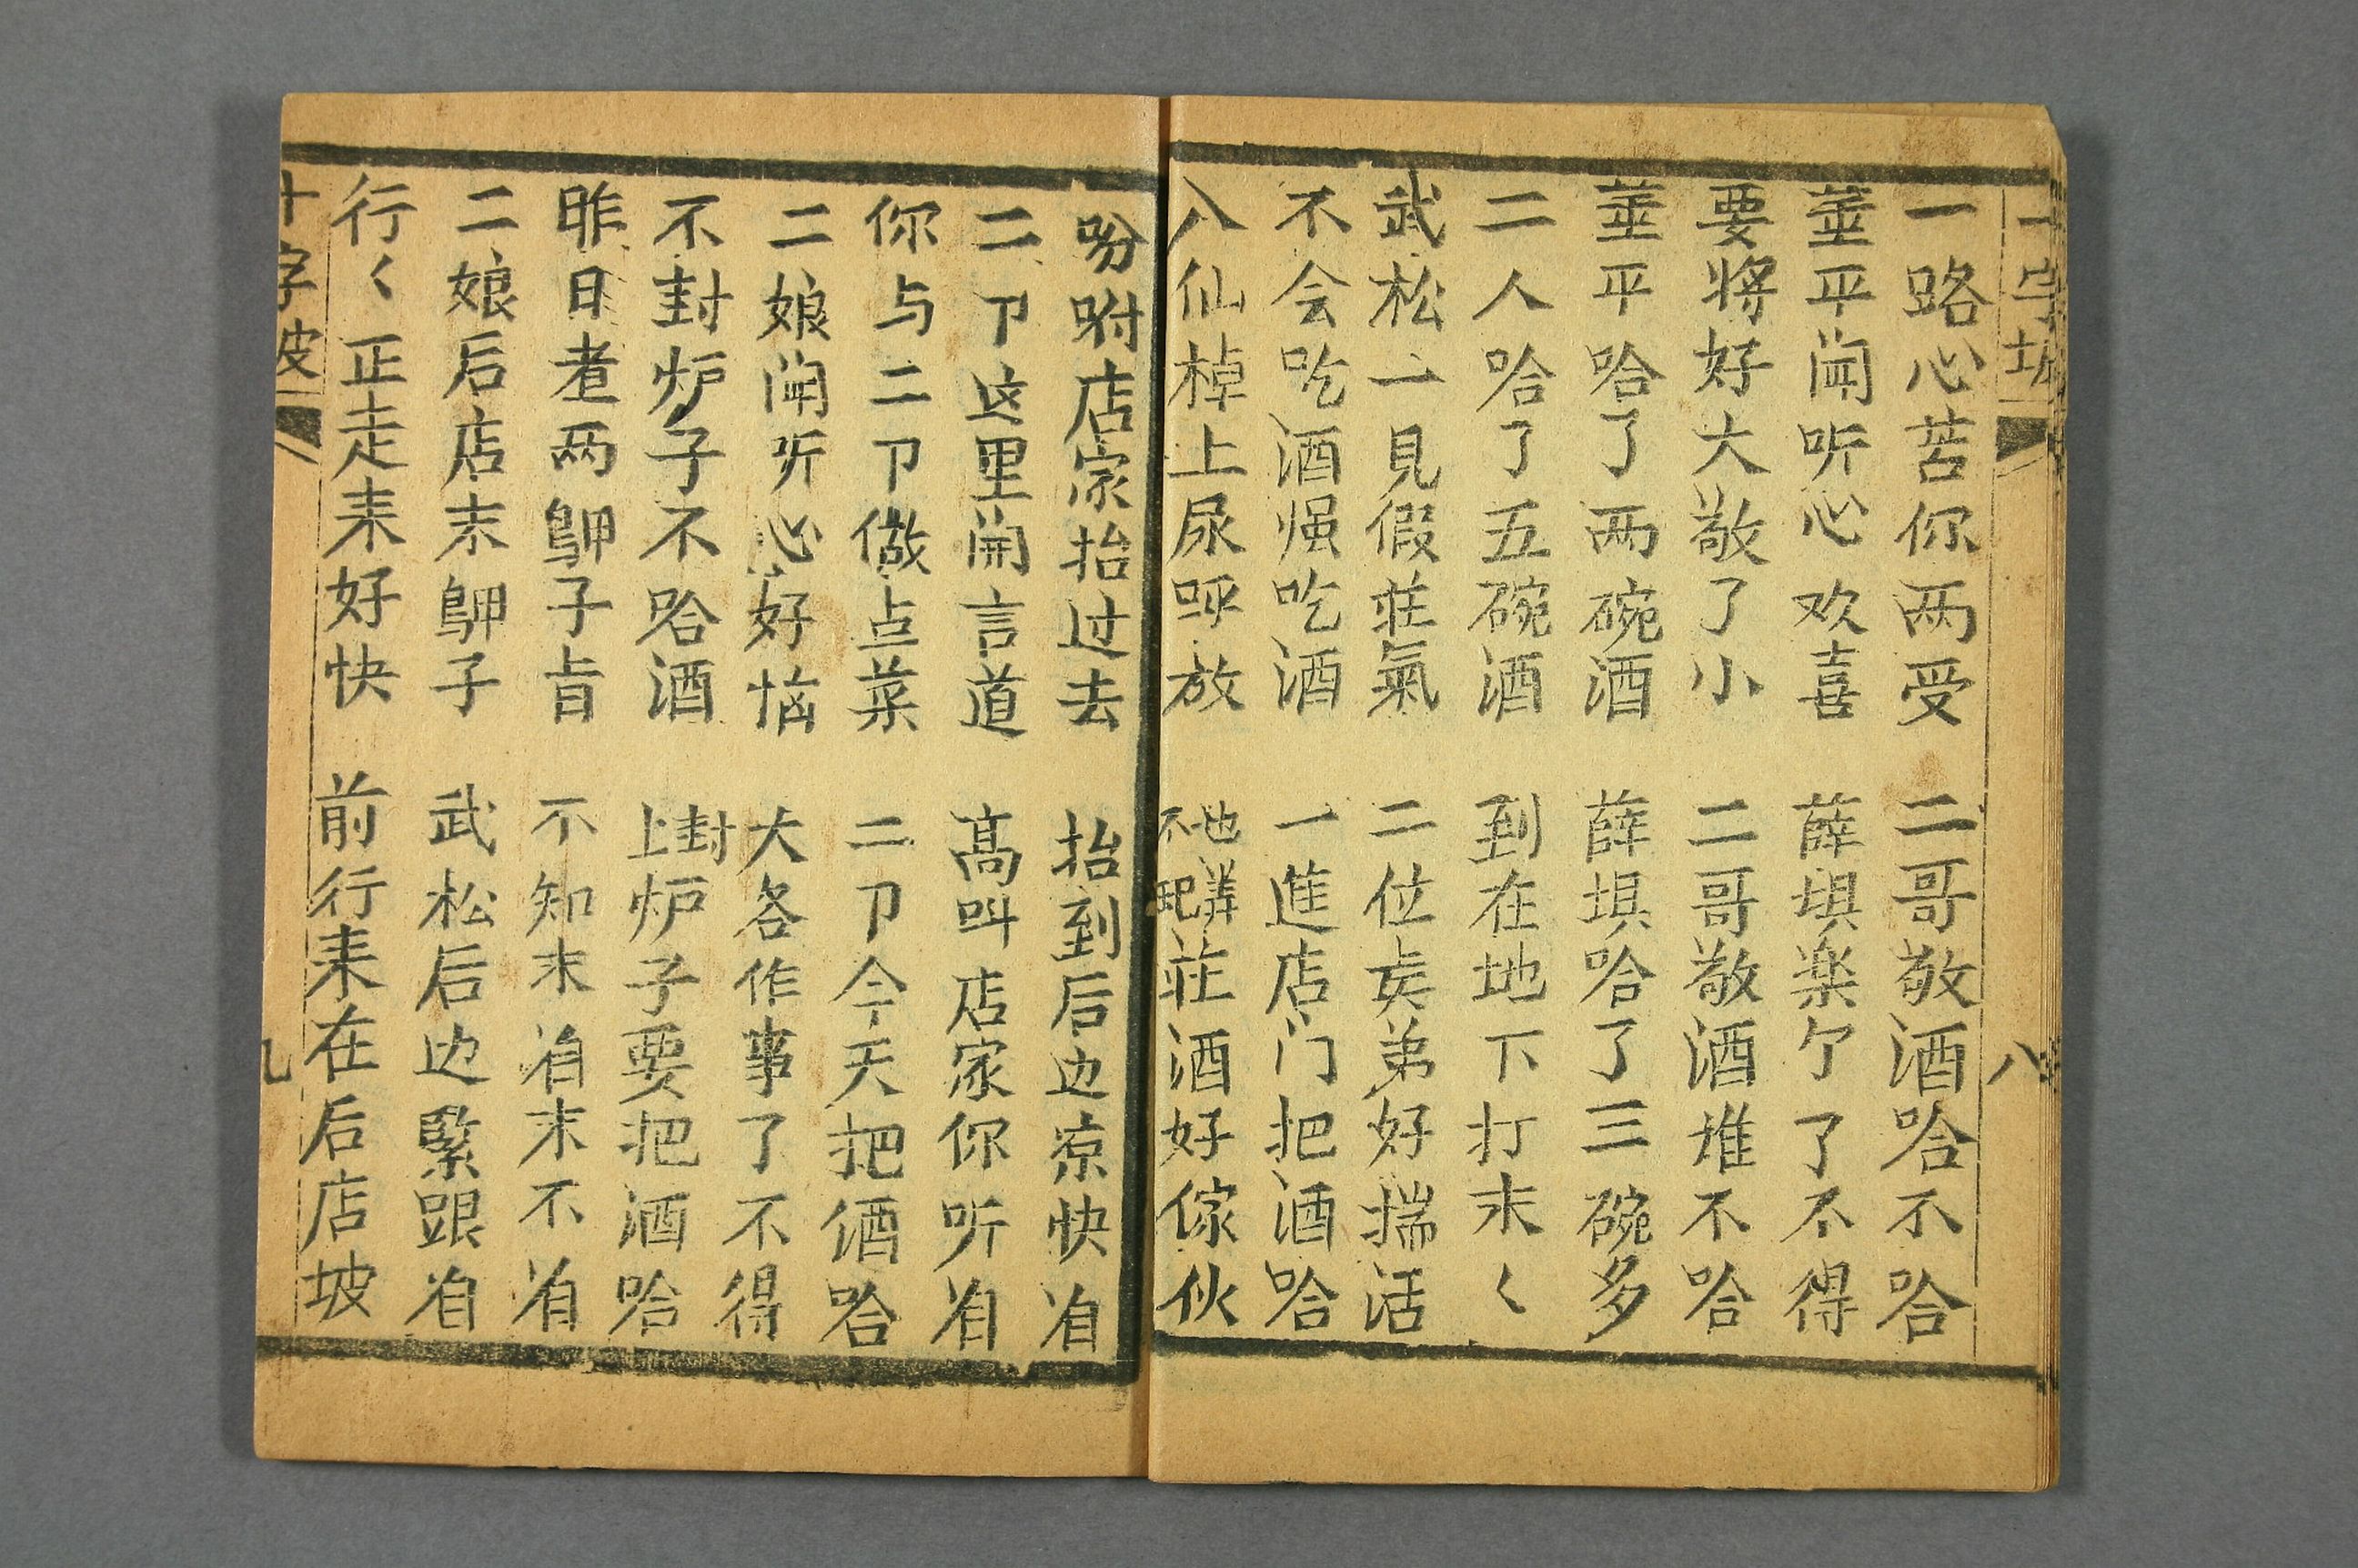 十字坡
八
一路心苦你两受 二哥敬酒哈不哈
董平闻听心欢喜 薛埧楽了不得
要将好大敬了小 二哥敬酒堆不哈
董平哈了两碗酒 薛埧哈了三碗多
二人哈了五碗酒 到在地下打末〱
武松一見假莊氣 二位矣弟好揣活
不会吃酒强吃酒 一進店门把酒哈
八仙棹上尿呀放 不起他講莊酒好傢伙
吩咐店家抬过去 抬到后边凉快自
二卩这里開言道 髙呌店家你听自
你与二卩做点菜 二卩今天把酒哈
二娘闻听心好恼 大各作事了不得
不封炉子不哈酒 封上炉子要把酒哈
昨日煮两鴨子旨 不知末自末不自
二娘后店末鴨子 武松后边緊跟自
行〱正走耒好快 前行耒在后店坡
十字坡
九